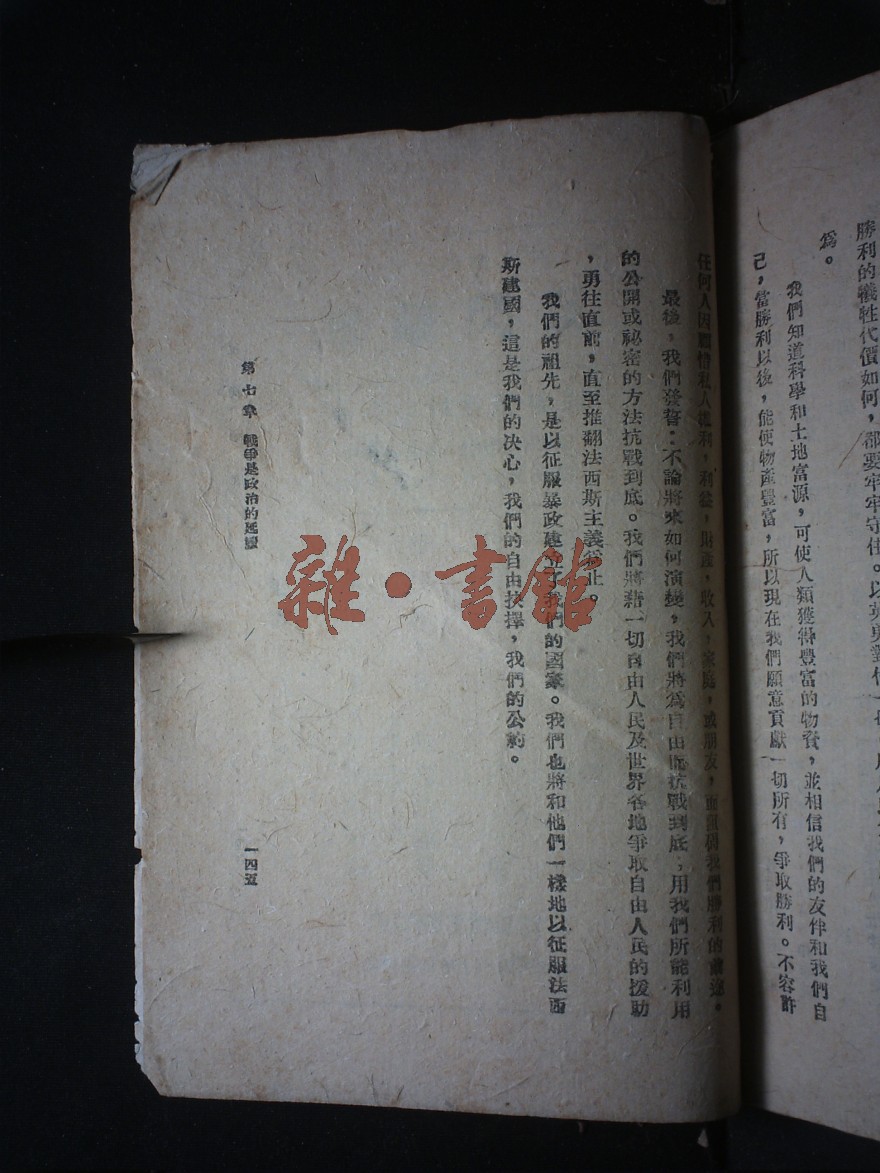 勝利的犧牲代價如何，都要牢牢守住。以
爲。
我們知道科學和土地富源，可使人類獲得豐富的物資，並相信我們的友伴和我們自
己，當勝利以後，能使物產豐富，所以現在我們願意貢獻一切所有，爭取勝利。不容許
任何人因顧惜私人權利，利益，財產，收入，家庭，或朋友，而阻碍我們勝利的
最後，我們發誓：不論將來如何演變，我們將爲自由而抗戰到底；用我們所能利用
的公開或祕密的方法抗戰到底。我們將藉一切自由人民及世界各地爭取自由人民的援助
，勇往直前，直至推翻法西斯主義爲止。
我們的祖先，是以征服暴政建立了我們的國家。我們也將和他們一樣地以征服法西
斯建國，這是我們的決心，我們的自由抉擇，我們的公約。
第七章　戰爭是政治的延續
一四五
雜·書館